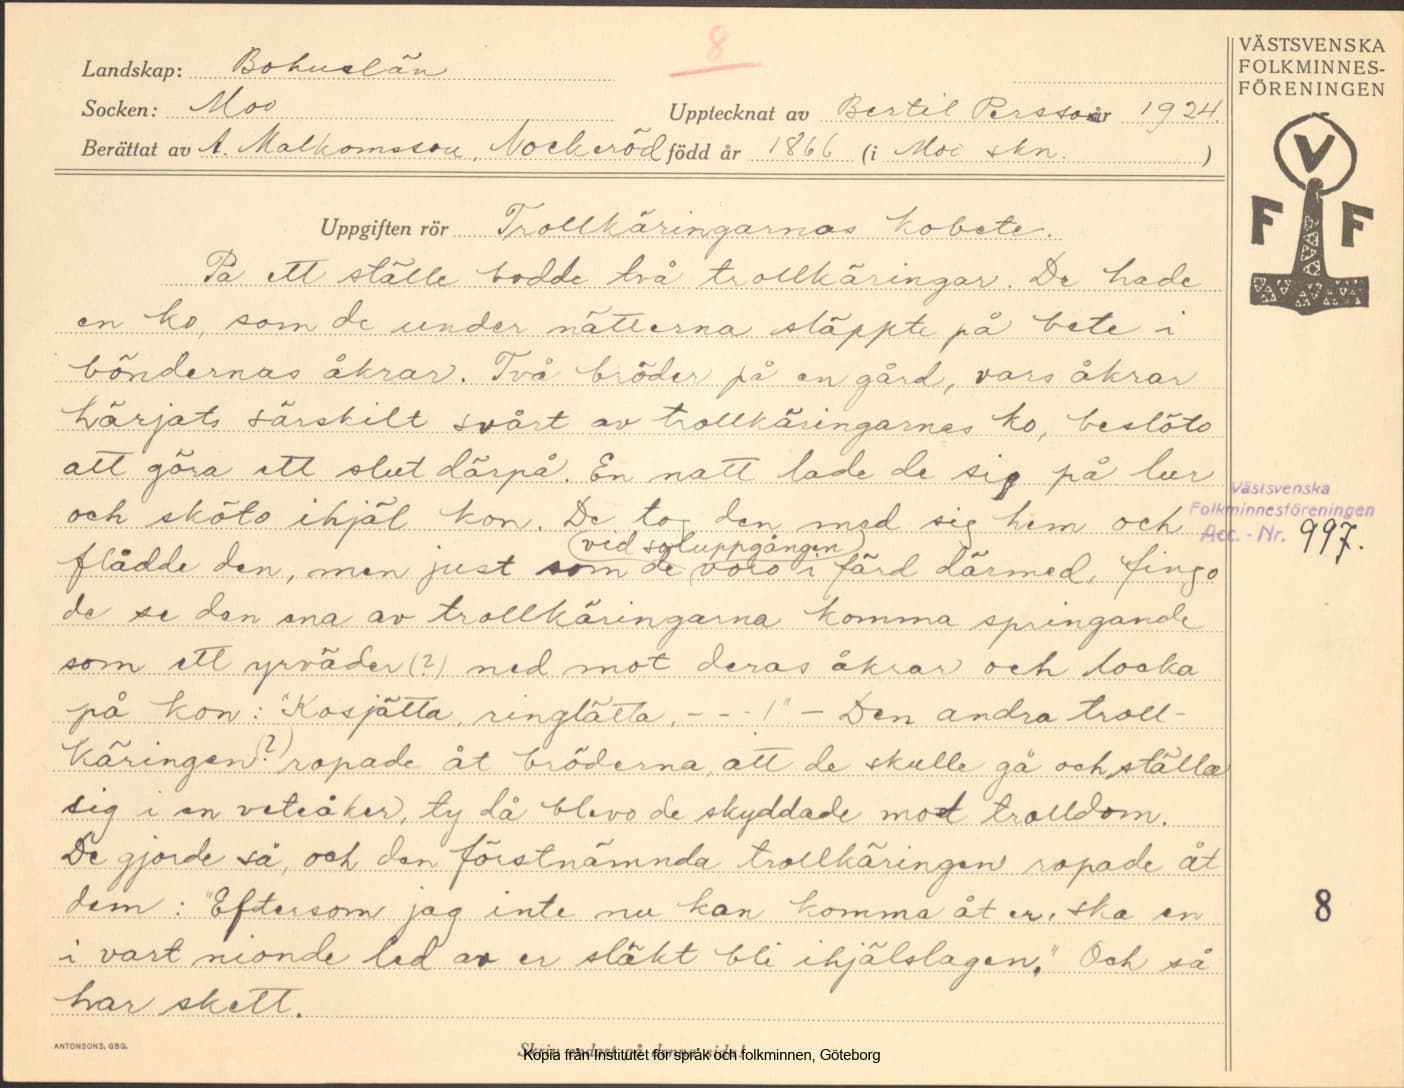 8
Landskap: Bohuslän
Socken: Moo
Upptecknat av Bertil Persson år 1924.
Berättat av A. Malkomsson, Nockeröd född år 1866 (i Moo skn. )
VÄSTSVENSKA
FOLKMINNES-
FÖRENINGEN
V
F F
Uppgiften rör Trollkäringarnas kobete.
På ett ställe bodde två trollkäringar. De hade
en ko, som de under nätterna släppte på bete i
böndernas åkrar. Två bröder på en gård, vars åkrar
härjats särskilt svårt av trollkäringarnas ko, beslöto
att göra ett slut därpå. En natt lade de sig på lur
och sköto ihjäl kon. De tog den med sig hem och
(ved soluppgången)
flådde den, men just som de voro i färd därmed, fingo
de se den ena av trollkäringarna komma springande
som ett yrväder (?) ned mot deras åkrar och locka
på kon: "Kosjätta, ringlätta, - - - !" - Den andra troll-
käringen (?) ropade åt bröderna, att de skulle gå och ställa
sig i en veteåker, ty då blevo de skyddade mot trolldom.
De gjorde så, och den förstnämnda trollkäringen ropade åt
dem: "Eftersom jag inte nu kan komma åt er, ska en
i vart nionde led av er släkt bli ihjälslagen." Och så
har skett.
Västsvenska
Folkminnesföreningen
Acc. - Nr. 997.
8
ANTONSONS, GBG.
Skriv endast på denna sida!
Kopia från Institutet för språk och folkminnen, Göteborg